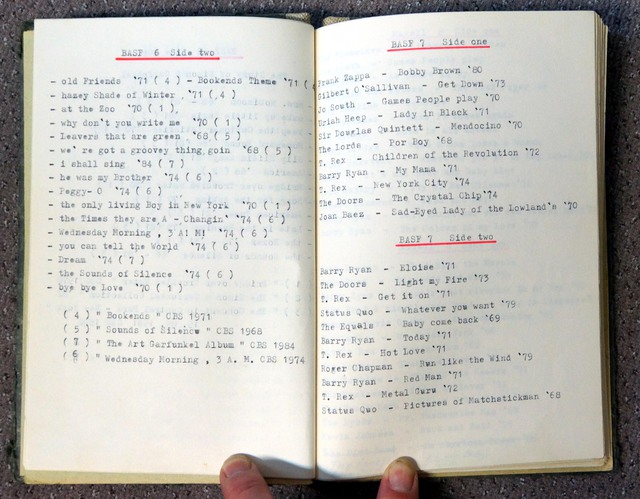 BASF 6 Side two
- old Friends '71 ( 4 ) - Bookends Theme '71 (
- hazey Shade of Winter '71 ( 4 )
- at the Zoo '70 ( 1 ),
- why don't you write me '70 ( 1 )
- Leavers that are green '68 ( 5 )
- we're got a groovey thing goin '68 ( 5 )
- i shall sing '84 ( 7 )
- he was my Brother '74 ( 6 )
- Peggy- O '74 ( 6 )
- the only living Boy in New York '70 ( 1 )
- the Times they are A - Changin' '74 ( 6 )
- Wednesday Morning , 3 A! M! '74 ( 6 )
- you can tell the World '74 ( 6 )
- Dream '74 ( 7 )
- the Sounds of Silence '74 ( 6 )
- bye bye Love '70 ( 1 )
( 4 ) " Bookends " CBS 1971
( 5 ) " Sounds of Silence " CBS 1968
( 7 ) " The Art Garfunkel Album " CBS 1984
( 6 ) " Wednesday Morning , 3 A. M. CBS 1974
BASF 7 Side one
Frank Zappa - Bobby Brown '80
Gilbert O'Sullivan - Get Down '73
Jo South - Games People play '70
Uriah Heep - Lady in Black '71
Sir Douglas Quintett - Mendocino '70
The Lords - Por Boy '68
T. Rex - Children of the Revolution '72
Barry Ryan - My Mama '71
T. Rex - New York City '74
The Doors - The Crystal Chip '74
Joan Baez - Sad-Eyed lady of the Lowland's '70
BASF 7 Side two
Barry Ryan - Eloise '71
The Doors - Light my Fire '73
T. Rex - Get it on '71
Status Quo - Whatever you want '79
The Equals - Baby come back '69
Barry Ryan - Today '71
T. Rex - Hot Love '71
Roger Chapman - Run like the Wind '79
Barry Ryan - Red Man '71
T. Rex - Metal Guru '72
Status Quo - Pictures of Matchstickman '68